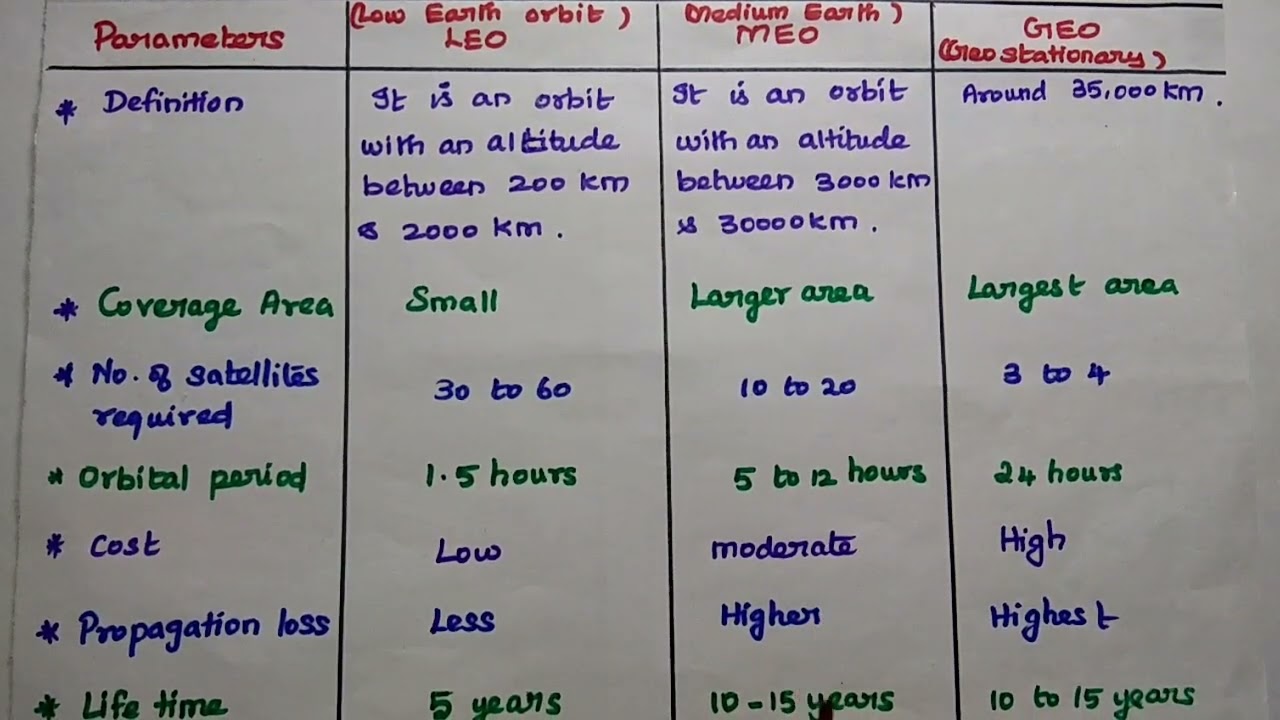 Parameters
(Low Earth orbit)
LEO
(Medium Earth)
MEO
GEO
(Geo stationary)
* Definition
It is an orbit
with an altitude
between 200 km
& 2000 km.
It is an orbit
with an altitude
between 3000 km
& 30000 km.
Around 35,000 km.
* Coverage Area
Small
Larger area
Largest area
* No. of satellites
required
30 to 60
10 to 20
3 to 4
* Orbital period
1.5 hours
5 to 12 hours
24 hours
* Cost
Low
moderate
High
* Propagation loss
Less
Higher
Highest
* Life time
5 years
10 - 15 years
10 to 15 years